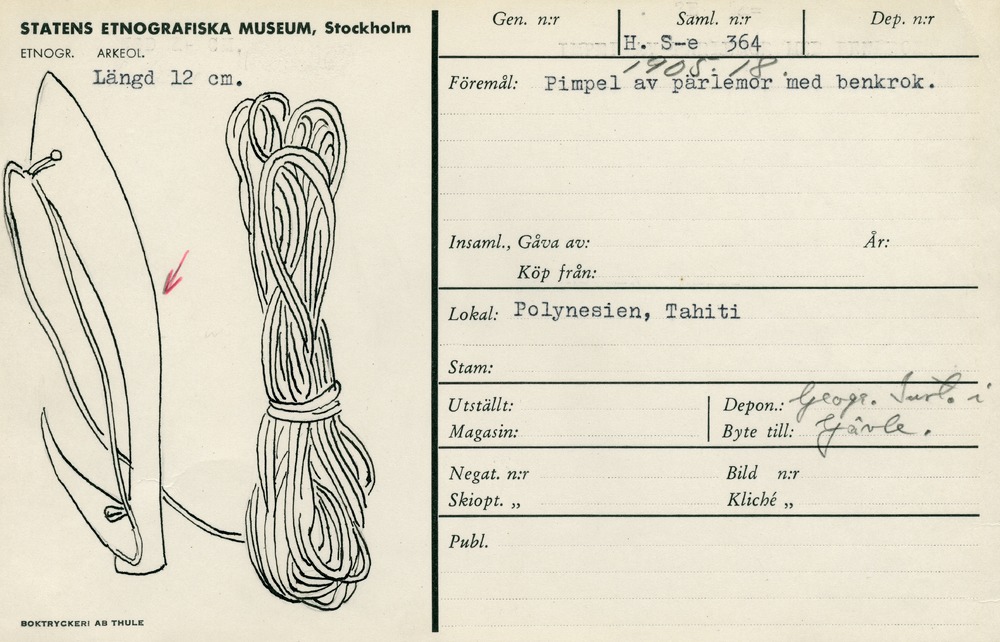 STATENS ETNOGRAFISKA MUSEUM, Stockholm
ETNOGR. ARKEOL.
Längd 12 cm.
BOKTRYCKERI AB THULE
Gen. n:r Saml. n:r Dep. n:r
H. S-e 364
1905. 18.
Föremål: Pimpel av pärlemor med benkrok.
Insaml., Gåva av: År:
Köp från:
Lokal: Polynesien, Tahiti
Stam:
Utställt: Depon.: Geogr. Inst. i
Magasin: Byte till: Gävle.
Negat. n:r Bild n:r
Skiopt. „ Kliché „
Publ.